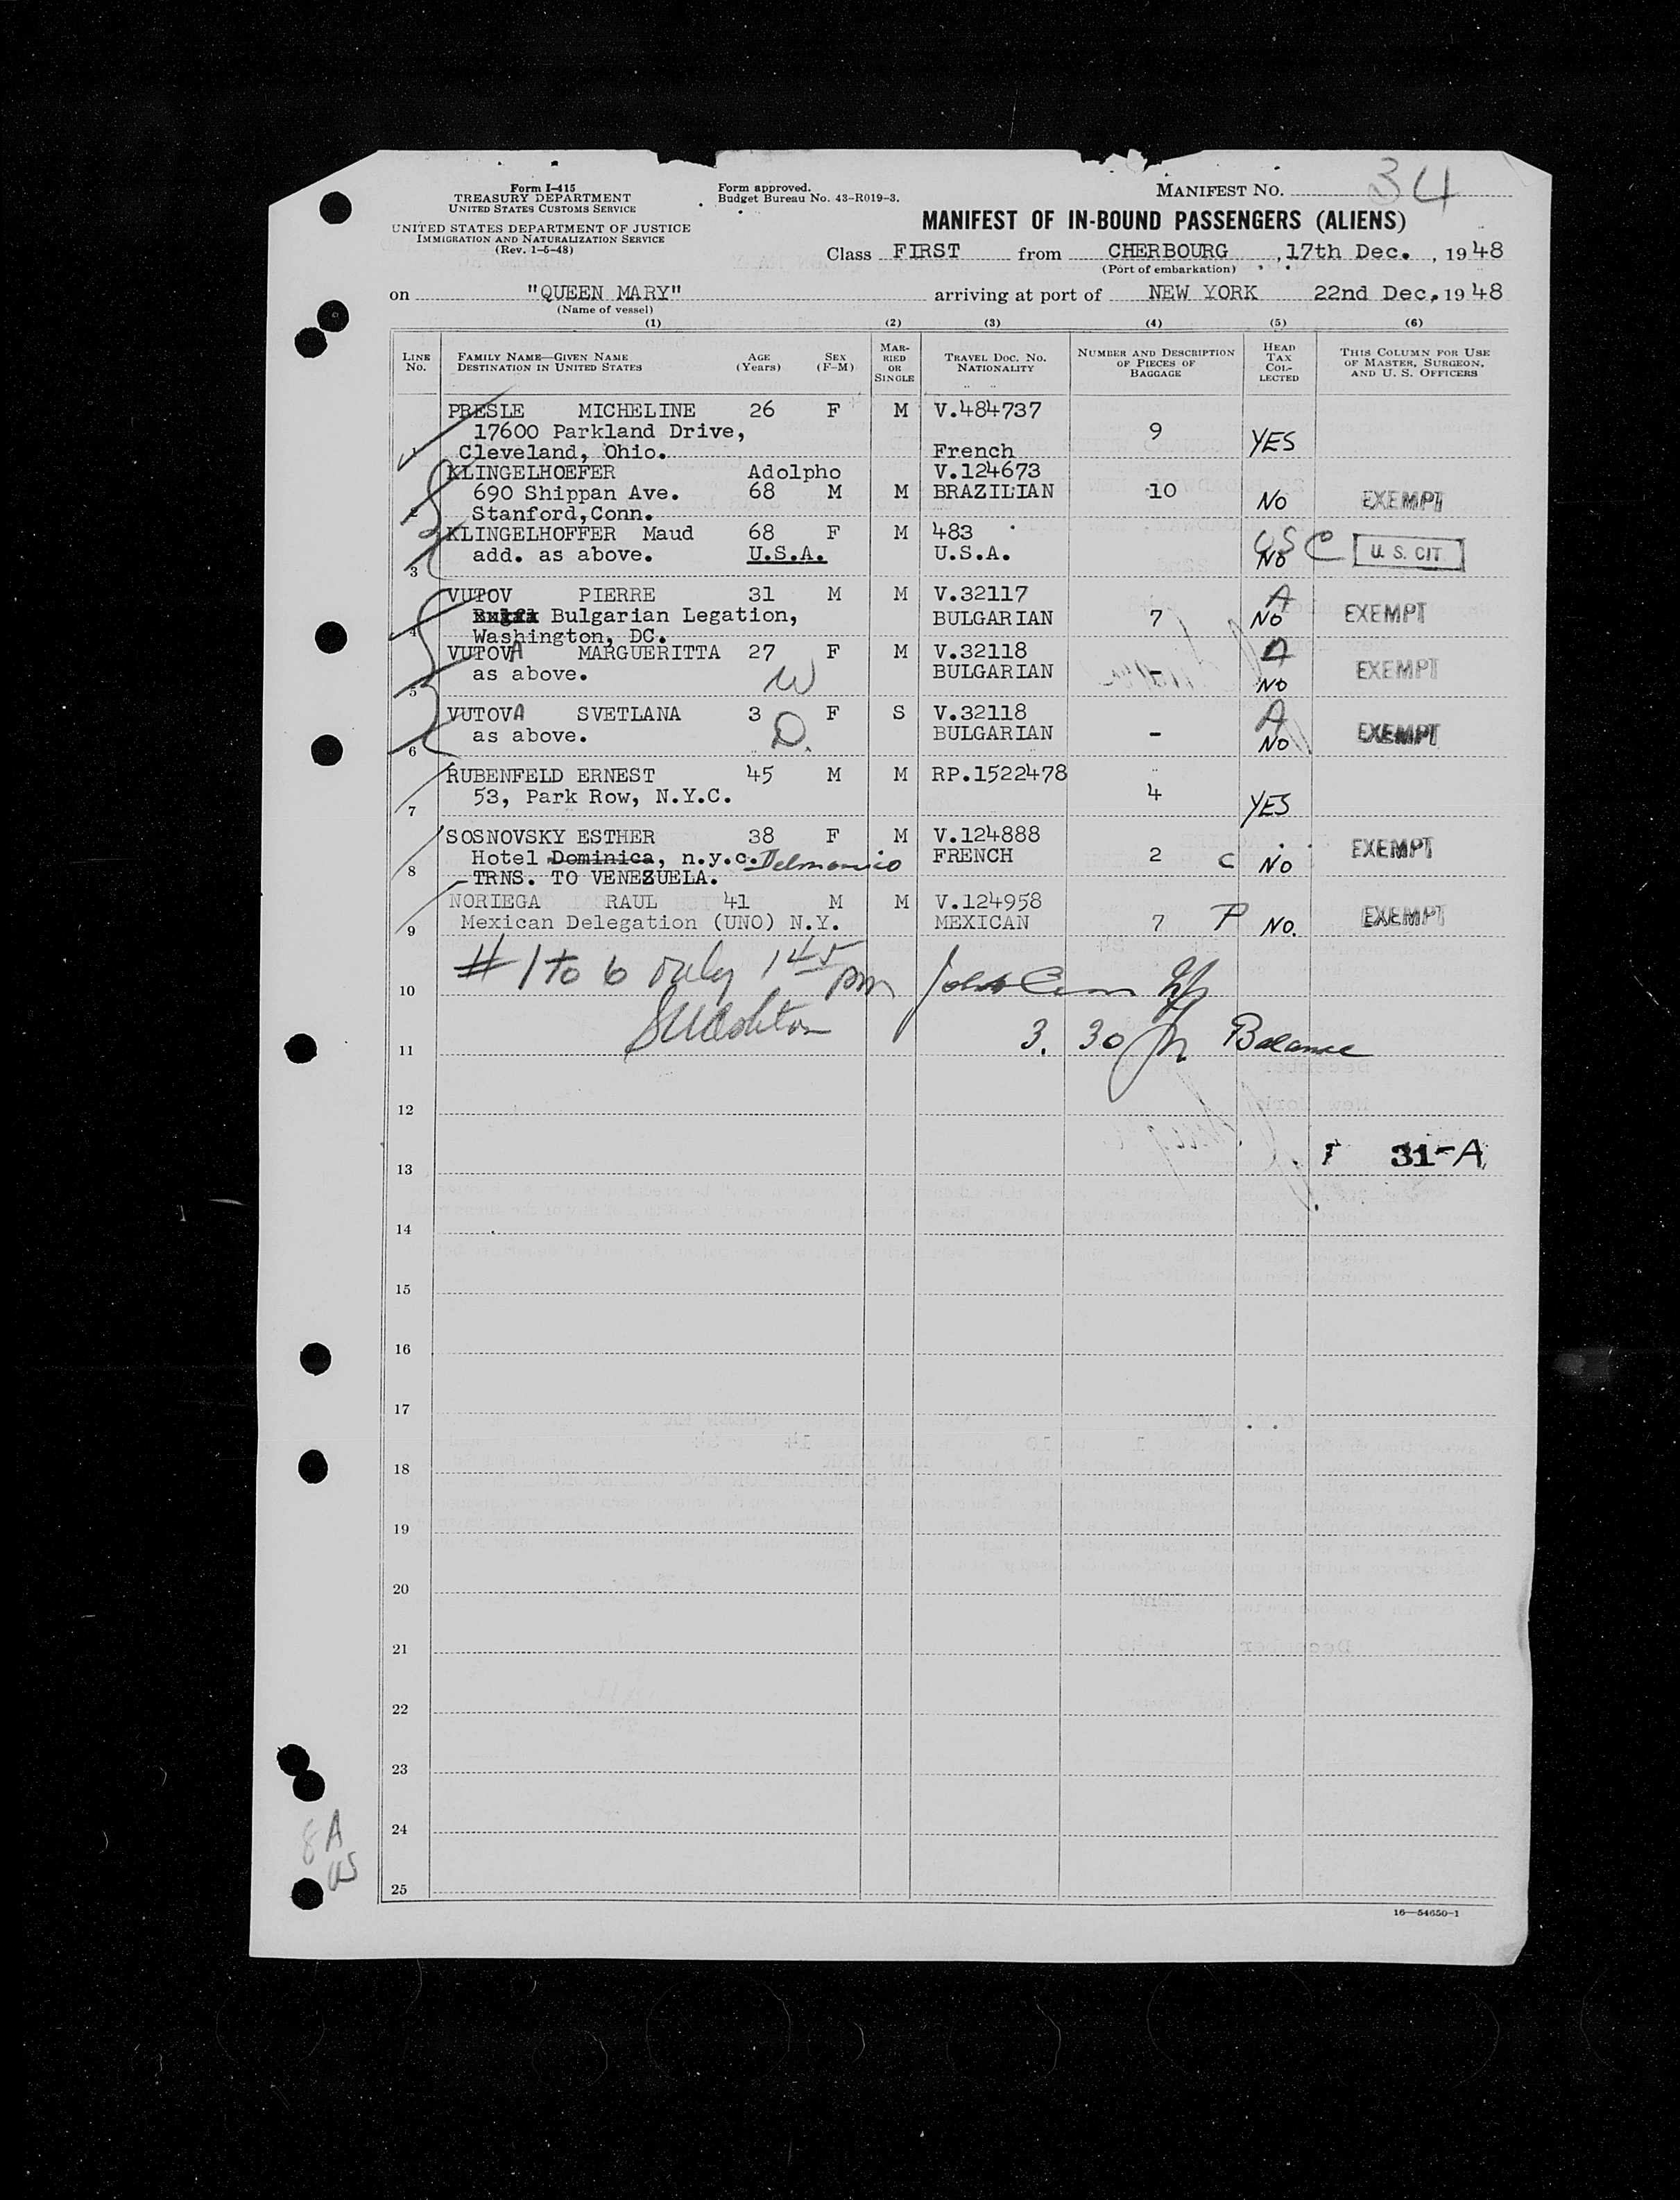 Form I-415
TREASURY DEPARTMENT
UNITED STATES CUSTOMS SERVICE
UNITED STATES DEPARTMENT OF JUSTICE
IMMIGRATION AND NATURALIZATION SERVICE
(Rev. 1-5-48)
Form approved.
Budget Bureau No. 43-R019-3.
MANIFEST NO. 34
MANIFEST OF IN-BOUND PASSENGERS (ALIENS)
Class FIRST from CHERBOURG, 17th Dec., 1948
(Port of embarkation)
on "QUEEN MARY" arriving at port of NEW YORK 22nd Dec, 1948
(Name of vessel)
(1) (2) (3) (4) (5) (6)
LINE NO. FAMILY NAME—GIVEN NAME DESTINATION IN UNITED STATES AGE (Years) SEX (F-M) MARRIED OR SINGLE TRAVEL DOC. NO. NATIONALITY NUMBER AND DESCRIPTION OF PIECES OF BAGGAGE HEAD TAX COLLECTED THIS COLUMN FOR USE OF MASTER, SURGEON, AND U. S. OFFICERS
PRESLE MICHELINE 26 F M V.484737
17600 Parkland Drive, 9 YES
1 Cleveland, Ohio. French
KLINGELHOEFER Adolpho V.124673
690 Shippan Ave. 68 M M BRAZILIAN 10 NO EXEMPT
2 Stanford,Conn.
KLINGELHOFFER Maud 68 F M 483 USC
add. as above. U.S.A. U.S.A. NO U. S. CIT
3
VUTOV PIERRE 31 M M V.32117 A
Bulgarian Legation, BULGARIAN 7 NO EXEMPT
4 Washington, DC.
VUTOVA MARGUERITTA 27 F M V.32118 A
as above. W BULGARIAN - NO EXEMPT
5
VUTOVA SVETLANA 3 F S V.32118 A
as above. D. BULGARIAN - NO EXEMPT
6
RUBENFELD ERNEST 45 M M RP.1522478
53, Park Row, N.Y.C. 4 YES
7
SOSNOVSKY ESTHER 38 F M V.124888
Hotel Dominica, n.y.c. Delmonico FRENCH 2 C NO EXEMPT
8 TRNS. TO VENEZUELA.
NORIEGA RAUL 41 M M V.124958
Mexican Delegation (UNO) N.Y. MEXICAN 7 P NO. EXEMPT
9
# 1 to 6 only 1 45 pm
10
3. 30 Balance
11
12
31-A
13
14
15
16
17
18
19
20
21
22
23
24
8A
US
25
16—54650-1